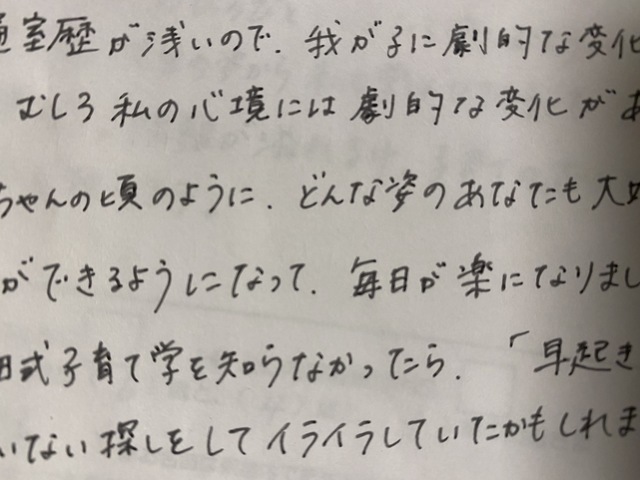 室歴が浅いので、我が子に劇的な変化
むしろ私の心境には劇的な変化があ
ちゃんの頃のように、どんな姿のあなたも大
ができるようになって、毎日が楽になりまし
田式子育て学を知らなかったら、「早起き
いない探しをしてイライラしていたかもしれま